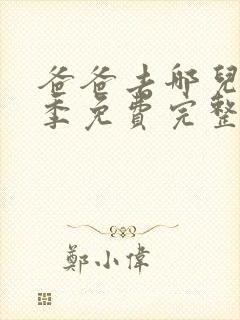 爸爸去哪兒
季免費完整
鄭小偉